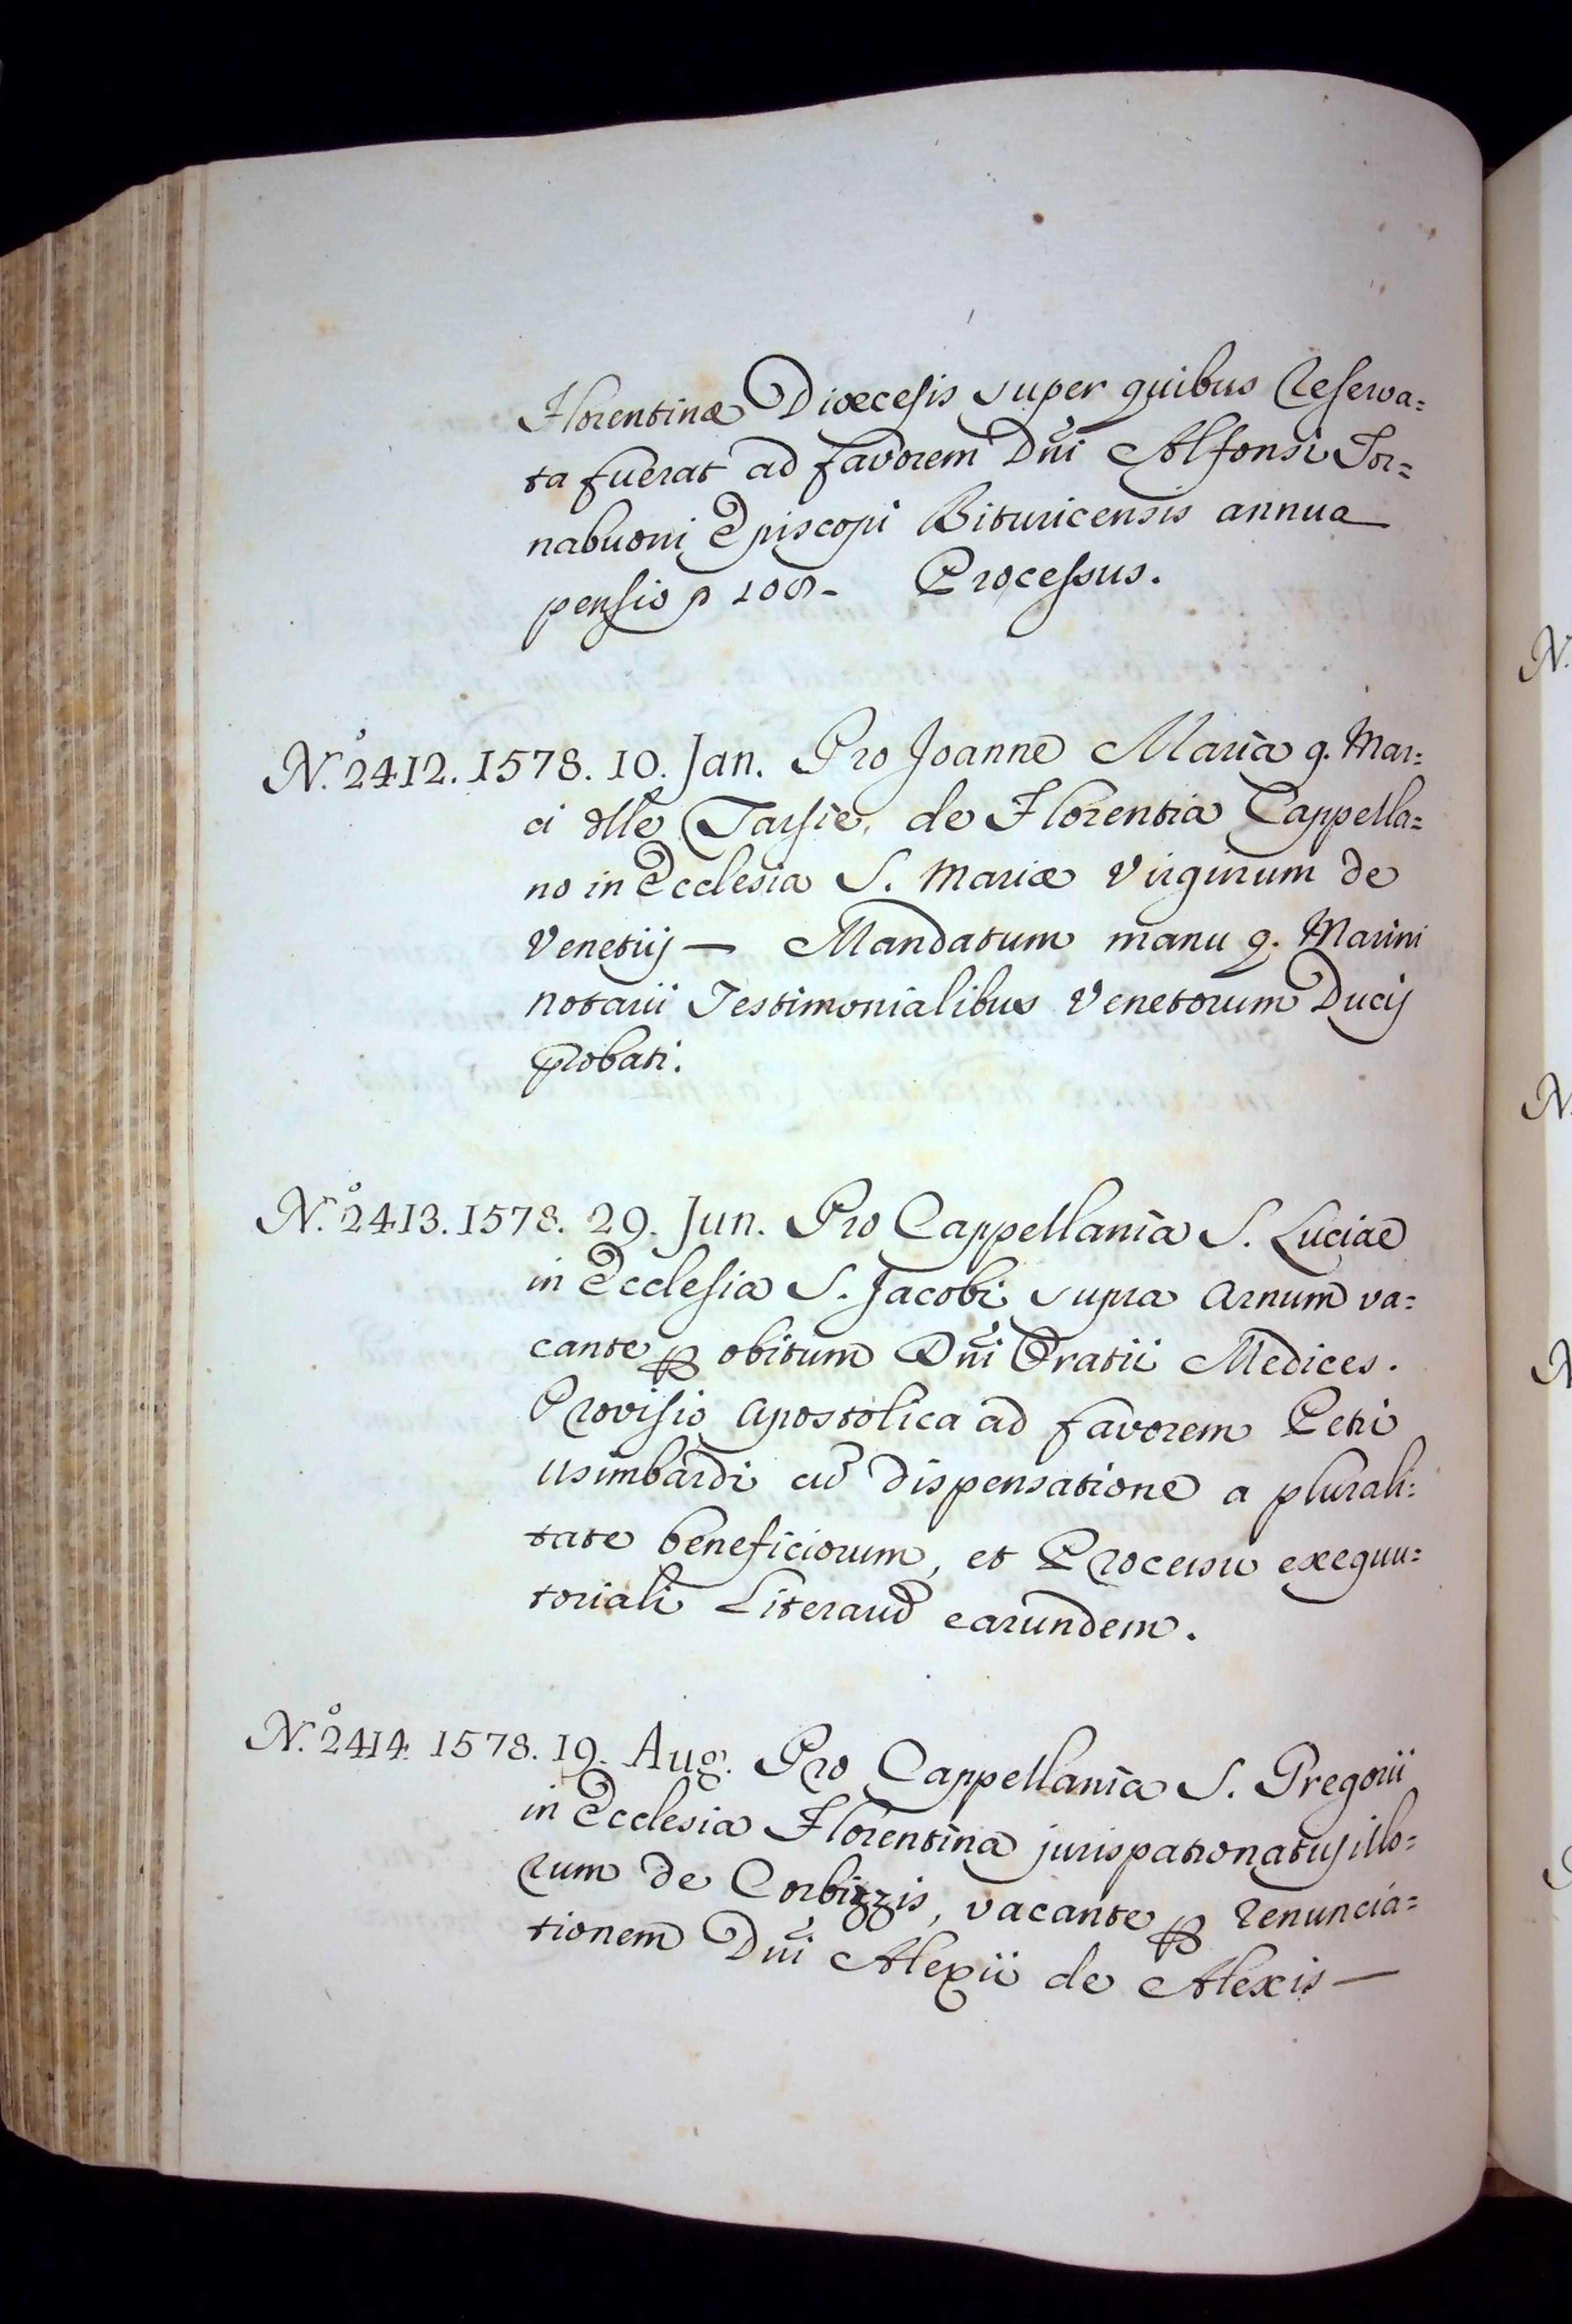 Florentinæ Diœcesis super quibus Reserva=
ta fuerat ad favorem Dñi Alfonsi Tor=
nabuoni Episcopi Bituricensis annua
pensio p 100- Processus.
N.º 2412. 1578. 10. Jan. Pro Joanne Maria q. Mar=
ci dlle Tarsie, de Florentia Cappella=
no in Ecclesia S. Mariæ Virginum de
Venetiis — Mandatum manu q. Marini
notarii Testimonialibus Venetorum Ducis
probati.
N.º 2413. 1578. 29. Jun. Pro Cappellania S. Luciae
in Ecclesia S. Jacobi supra Arnum va=
cante p obitum Dñi Oratii Medices.
Provisio Apostolica ad favorem Petri
Usimbardi cũ dispensatione a plurali=
tate beneficiorum, et Processu exequu=
toriali Literarũ earundem.
N.º 2414. 1578. 19. Aug. Pro Cappellania S. Gregorii
in Ecclesia Florentina jurispatronatus illo=
rum de Corbizzis, vacante p renuncia=
tionem Dñi Alexii de Alexis —
N.
N.
N